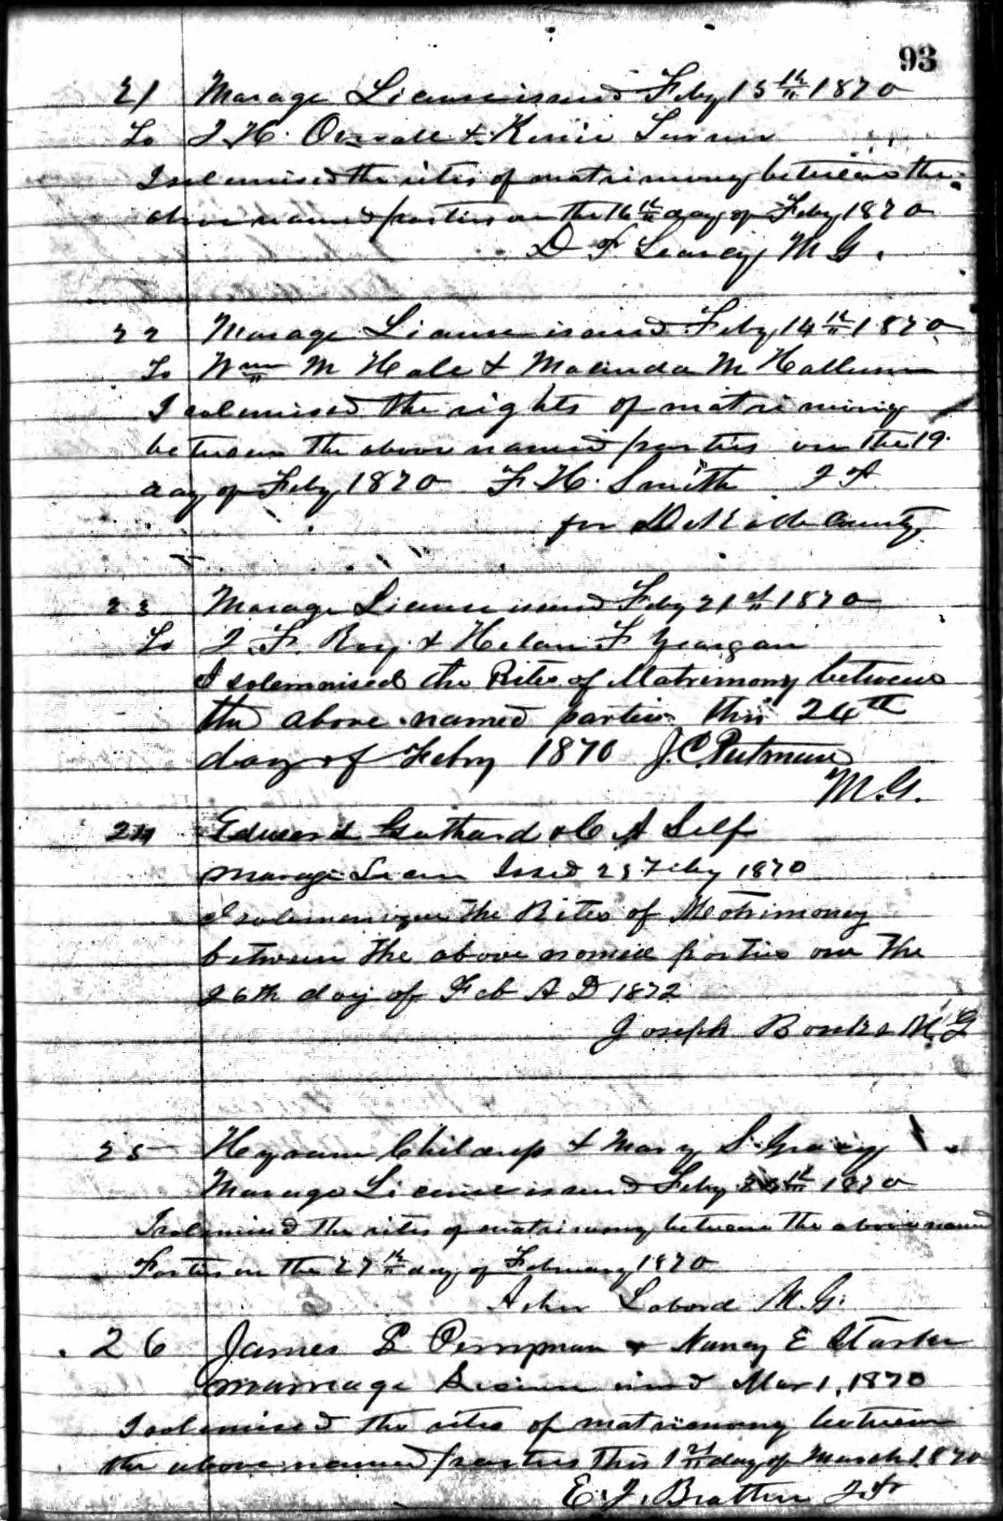 93
21 Marage License issued Feby 15th 1870
To J. H. Overall & Turner
I solemnised the rites of matrimony between the
above named parties on the 16th day of Feby 1870
D F Searcy M G.
22 Marage License issued Feby 14th 1870
To Wm M Hale & Malinda M Hallum
I solemnised the rights of matrimony
between the above named parties on the 19
day of Feby 1870 F. H. Smith J P
for DeKalb County
23 Marage License issued Feby 21st 1870
To J. F. Roy & Helan F Yeargan
I solemnised the Rites of Matremony between
the above named parties this 24th
day of Febry 1870 J. C. Putman
M. G.
24 Edward Guthard & C A Self
Marage Licen Issed 23 Feby 1870
I the Rites of Matrimoney
between the above named parties on the
26th day of Feb A D 1872
Joseph M G
25 Hyram & Mary S. Gracy
Marage License issued Feby 1870
I solemnised the rites of matrimony between the above named
Parties on the 27th day of February 1870
Labord M. G.
26 James P Perryman & Nancy E Starker
marriage License issued Mar 1, 1870
I solemnised the rites of matrimony between
the above named parties this 1st day of March 1870
E. J. Bratten J. P.